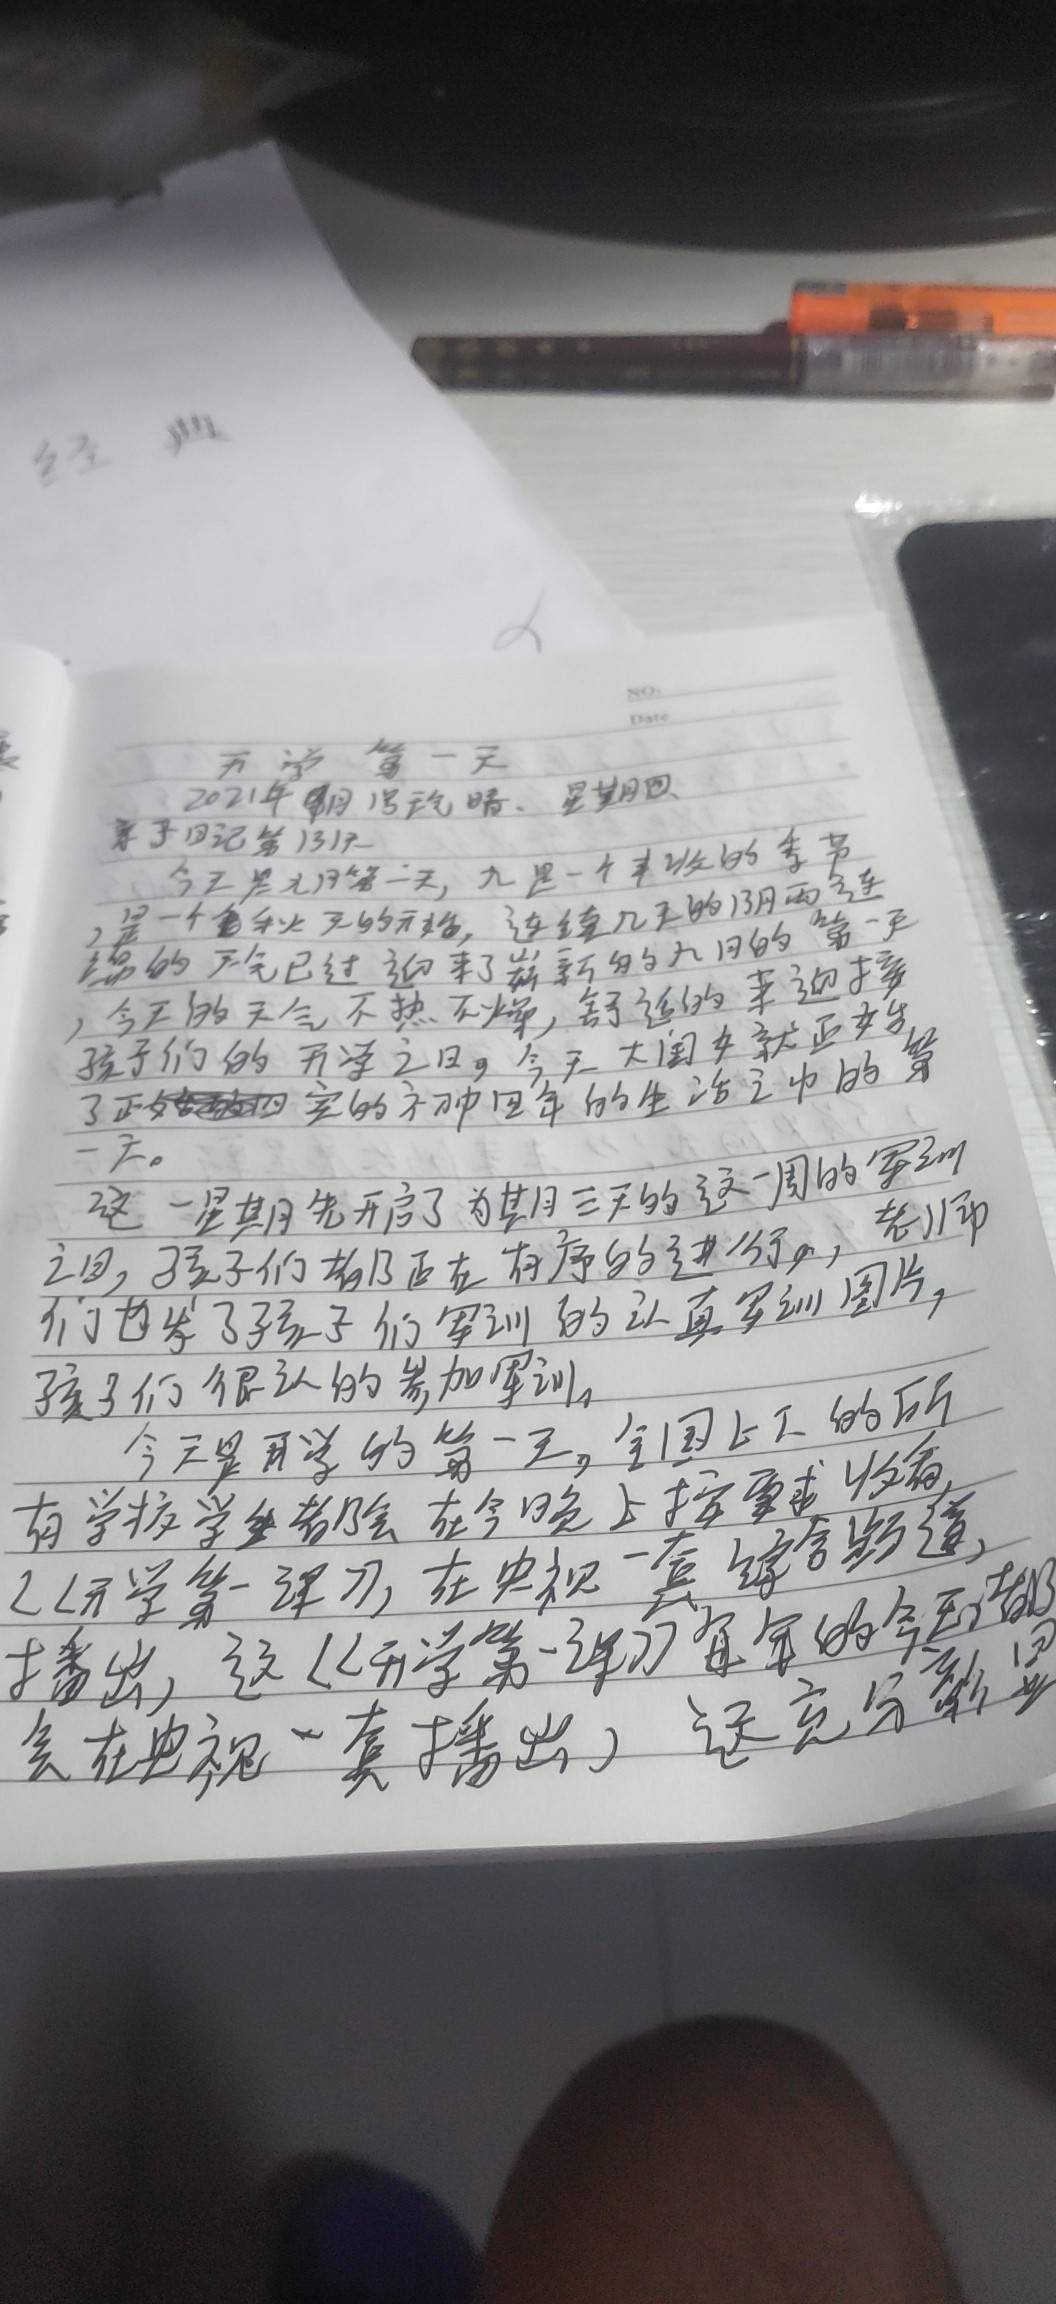 经典
NO:
Date
开学第一天
2021年9月1号 天气晴. 星期四、
亲子日记第131天
今天是九月第一天, 九是一个丰收的季节
, 是一个秋天的开始, 连续几天的阴雨连
绵的天气已过 迎来了崭新的九月的第一天
, 今天的天气不热不燥, 舒适的来迎接
孩子们的开学之日。今天大闺女就正好
了正 实的初中四年的生活之中的第
一天。
这一星期先开启了为期三天的这一周的军训
之日, 孩子们都正在有序的进行, 老师
们也发了孩子们军训的认真军训图片,
孩子们很认的参加军训。
今天是开学的第一天。全国上下的所
有学校学生都会在今晚上按要求收看,
《开学第一课》, 在央视一套综合频道,
播出, 这《开学第一课》每年的今天都
会在央视一套播出, 这充分彰显